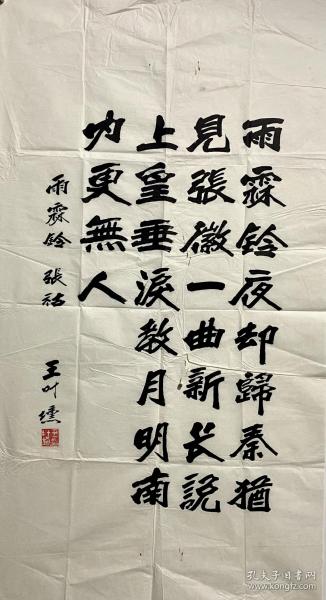 雨霖铃夜却歸秦猶
見張徽一曲新长說
上皇垂淚教月明南
内更無人
雨霖鈴 張祜
王叶
孔夫子旧书网
www.kongfz.com